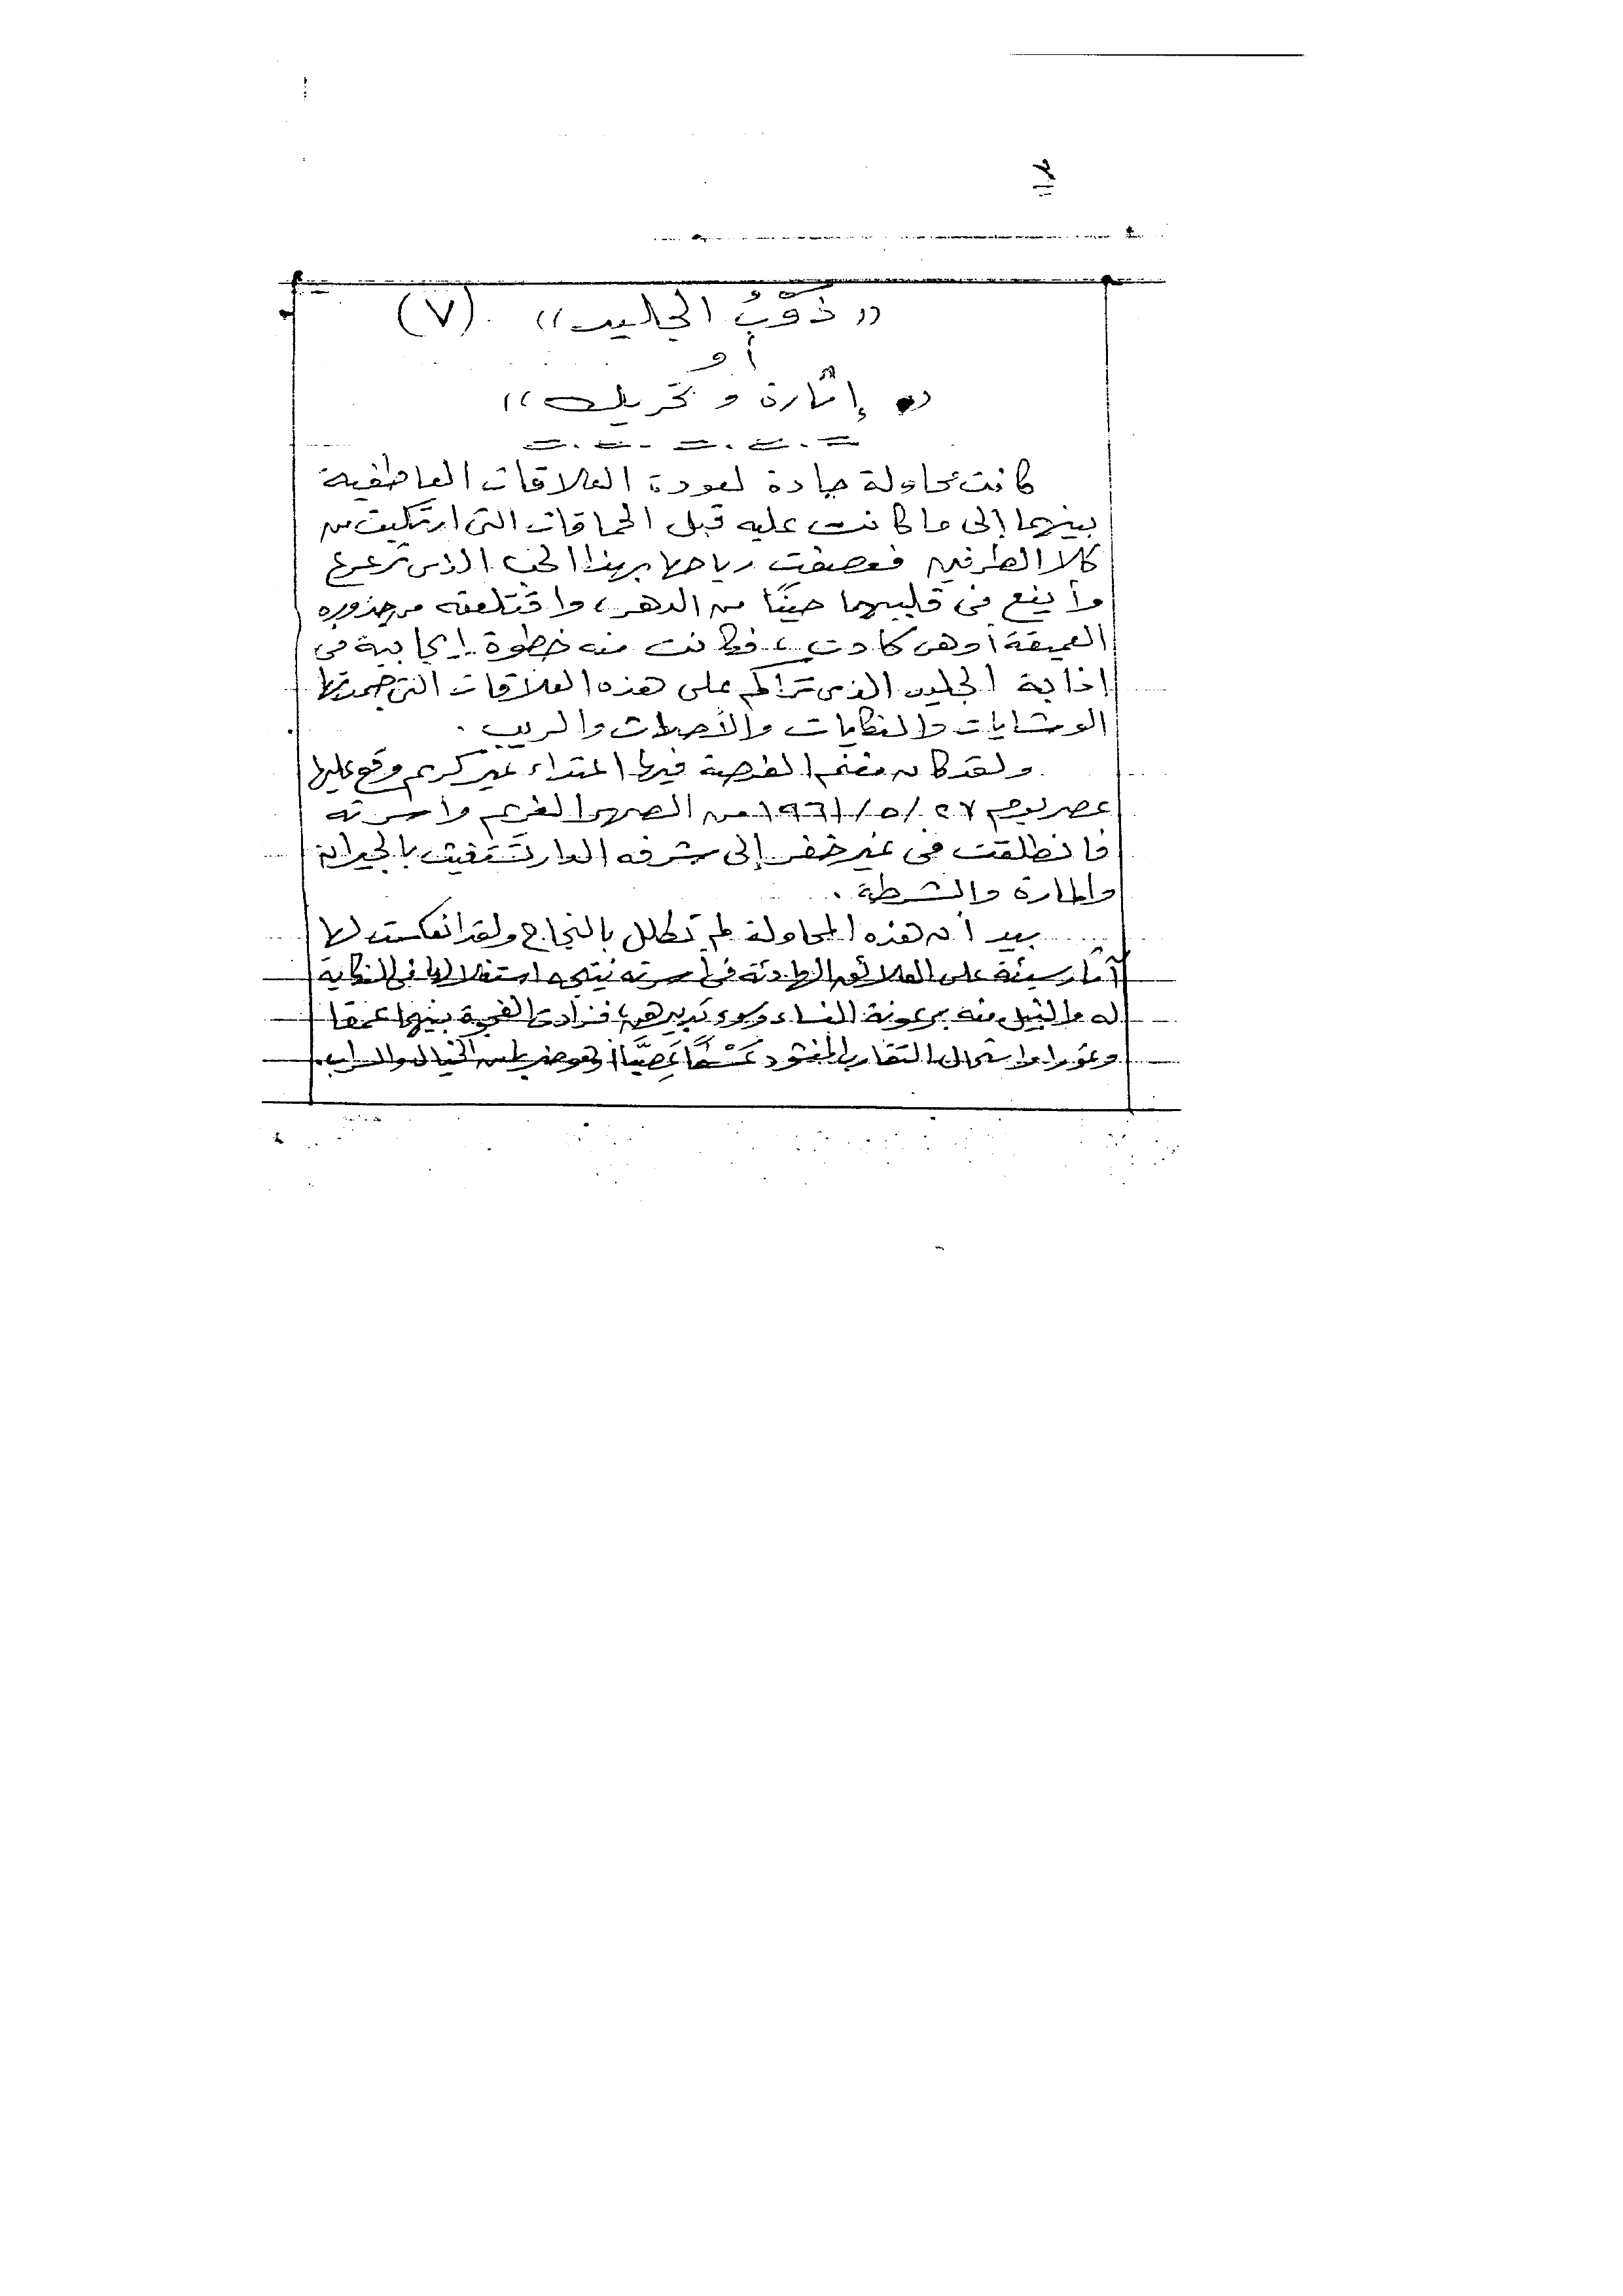 « ذَوْبُ الجليد » (٧)
أو
« إثارة وتحريك »
كانت محاولة جادة لعودة العلاقات العاطفية
بينهما إلى ما كانت عليه قبل الحماقات التى ارتكبت من
كلا الطرفين فعصفت رياحها بهذا الحب الذى ترعرع
وأينع فى قلبيهما حينًا من الدهر، واقتلعته من جذوره
العميقة أوهى كادت، فكانت منه خطوة إيجابية فى
إذابة الجليد الذى تراكم على هذه العلاقات التى جمدتها
الوشايات والنكايات و والريب .
ولقد كان مغنم الفرصة فيها اعتداء غير كريم وقع عليها
عصر يوم ٢٧ /٥ /١٩٦١ من الصهر الغريم وأسرته
فانطلقت فى غير خفر إلى شرفه الدار تَسْتغيث بالجيران
والمارة والشرطة .
بيد أن هذه المحاولة لم تكلل بالنجاح ولقد انعكست لها
آثار سيئة على العلائق الهادئة فى أسرته نتيجه استغلالها فى النكاية
له والنيل منه برعونة النساء وسوء تدبيرهن، فزادت الفجوة بينهما عمقا
وغورا واستحال التقارب المنشود عَصِيًّا أو هو ضرب من الخيال والسراب.